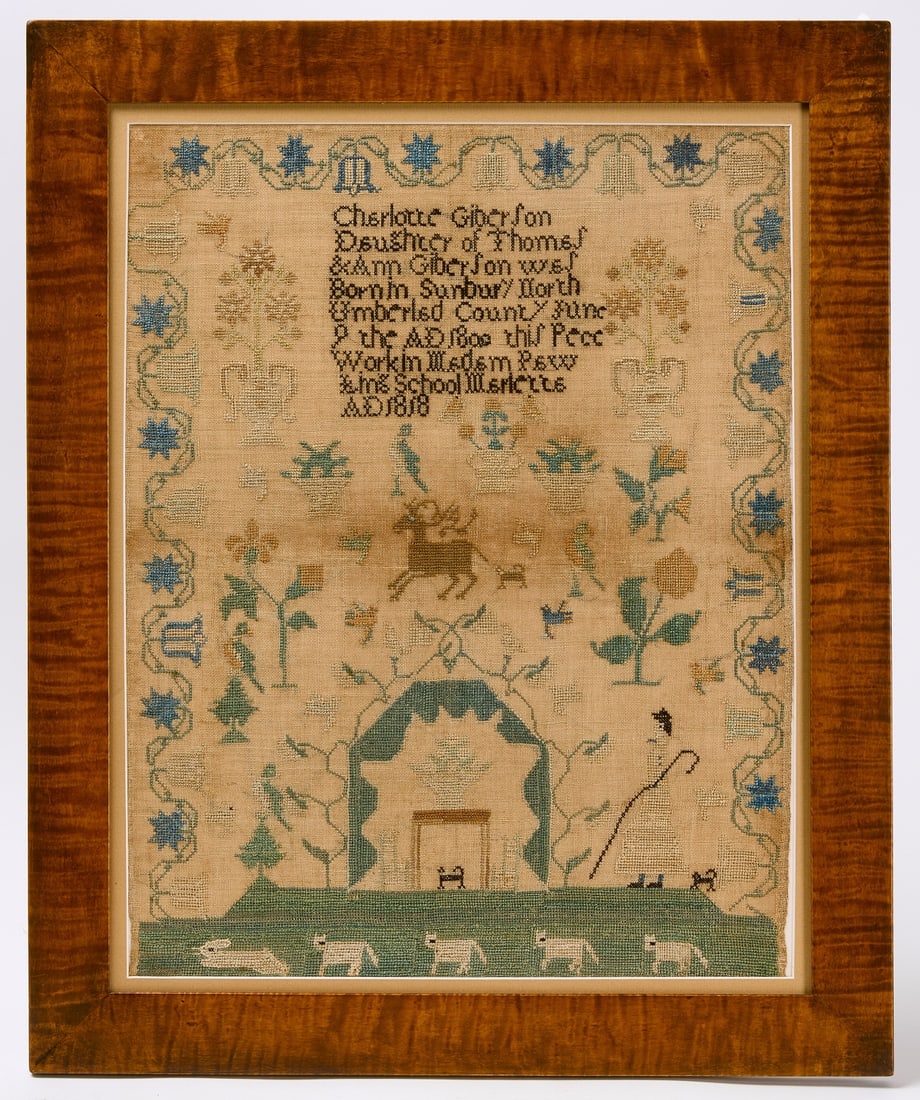 Charlotte Giberson
Daughter of Thomas
& Ann Giberson was
Born in Sunbury North
Umberlad County June
9 the AD 180 this Pece
Work in Madam Paw
School Marietta
AD 1818